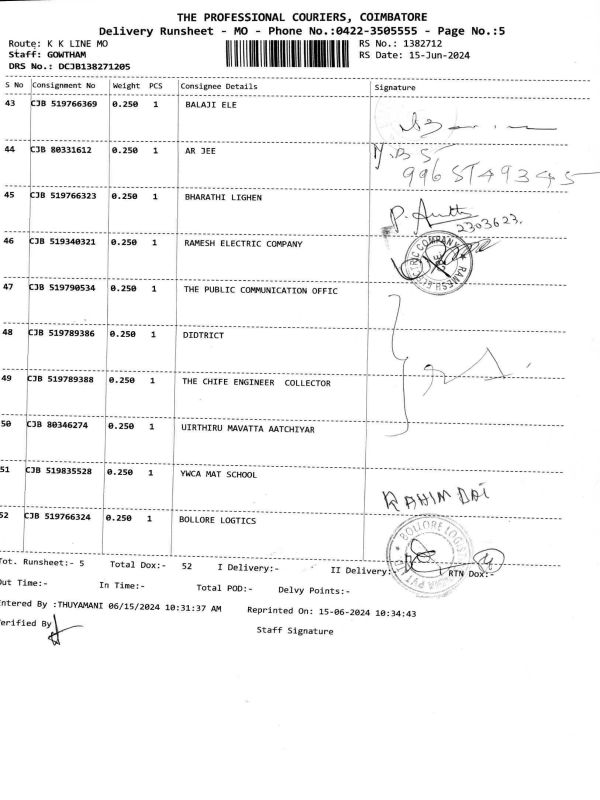 THE PROFESSIONAL COURIERS, COIMBATORE
Delivery Runsheet - MO - Phone No.:0422-3505555 - Page No.:5
Route: K K LINE MO RS No.: 1382712
Staff: GOWTHAM RS Date: 15-Jun-2024
DRS No.: DCJB138271205
S No Consignment No Weight PCS Consignee Details Signature
43 CJB 519766369 0.250 1 BALAJI ELE
44 CJB 80331612 0.250 1 AR JEE
45 CJB 519766323 0.250 1 BHARATHI LIGHEN
2303623.
46 CJB 519340321 0.250 1 RAMESH ELECTRIC COMPANY
47 CJB 519790534 0.250 1 THE PUBLIC COMMUNICATION OFFIC
48 CJB 519789386 0.250 1 DIDTRICT
49 CJB 519789388 0.250 1 THE CHIFE ENGINEER COLLECTOR
50 CJB 80346274 0.250 1 UIRTHIRU MAVATTA AATCHIYAR
51 CJB 519835528 0.250 1 YWCA MAT SCHOOL
52 CJB 519766324 0.250 1 BOLLORE LOGTICS
Tot. Runsheet:- 5 Total Dox:- 52 I Delivery:- II Delivery:- RTN Dox:-
Out Time:- In Time:- Total POD:- Delvy Points:-
Entered By :THUYAMANI 06/15/2024 10:31:37 AM Reprinted On: 15-06-2024 10:34:43
Verified By
Staff Signature